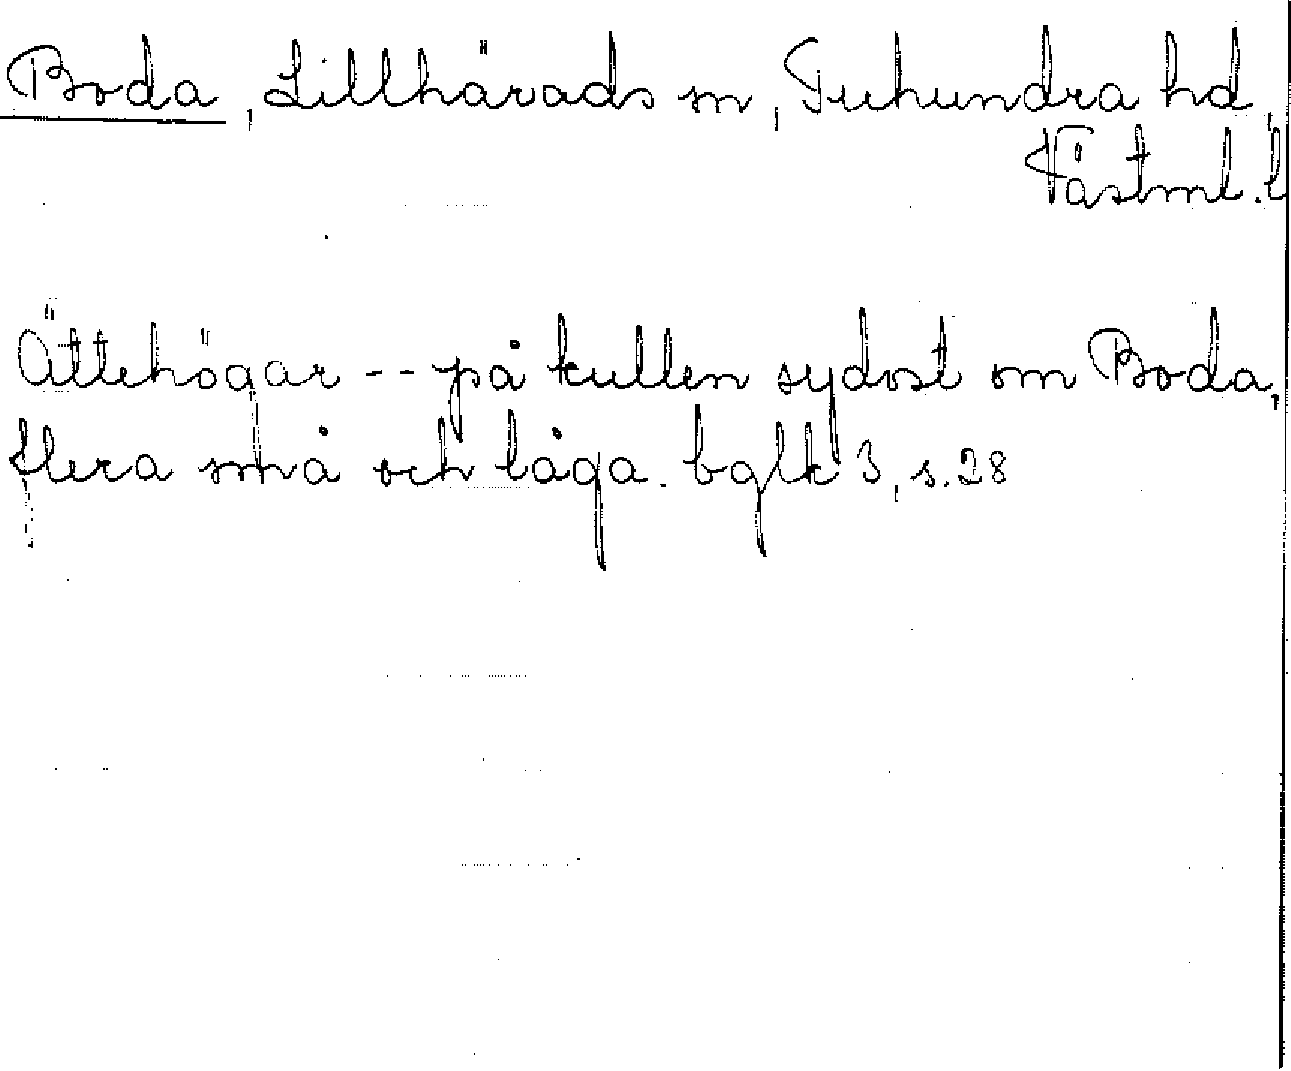 Boda, Lillhärads sn, Tuhundra hd,
Västml. l
Ättehögar -- på kullen sydost om Boda,
flera små och låga. bglk 3, s. 28